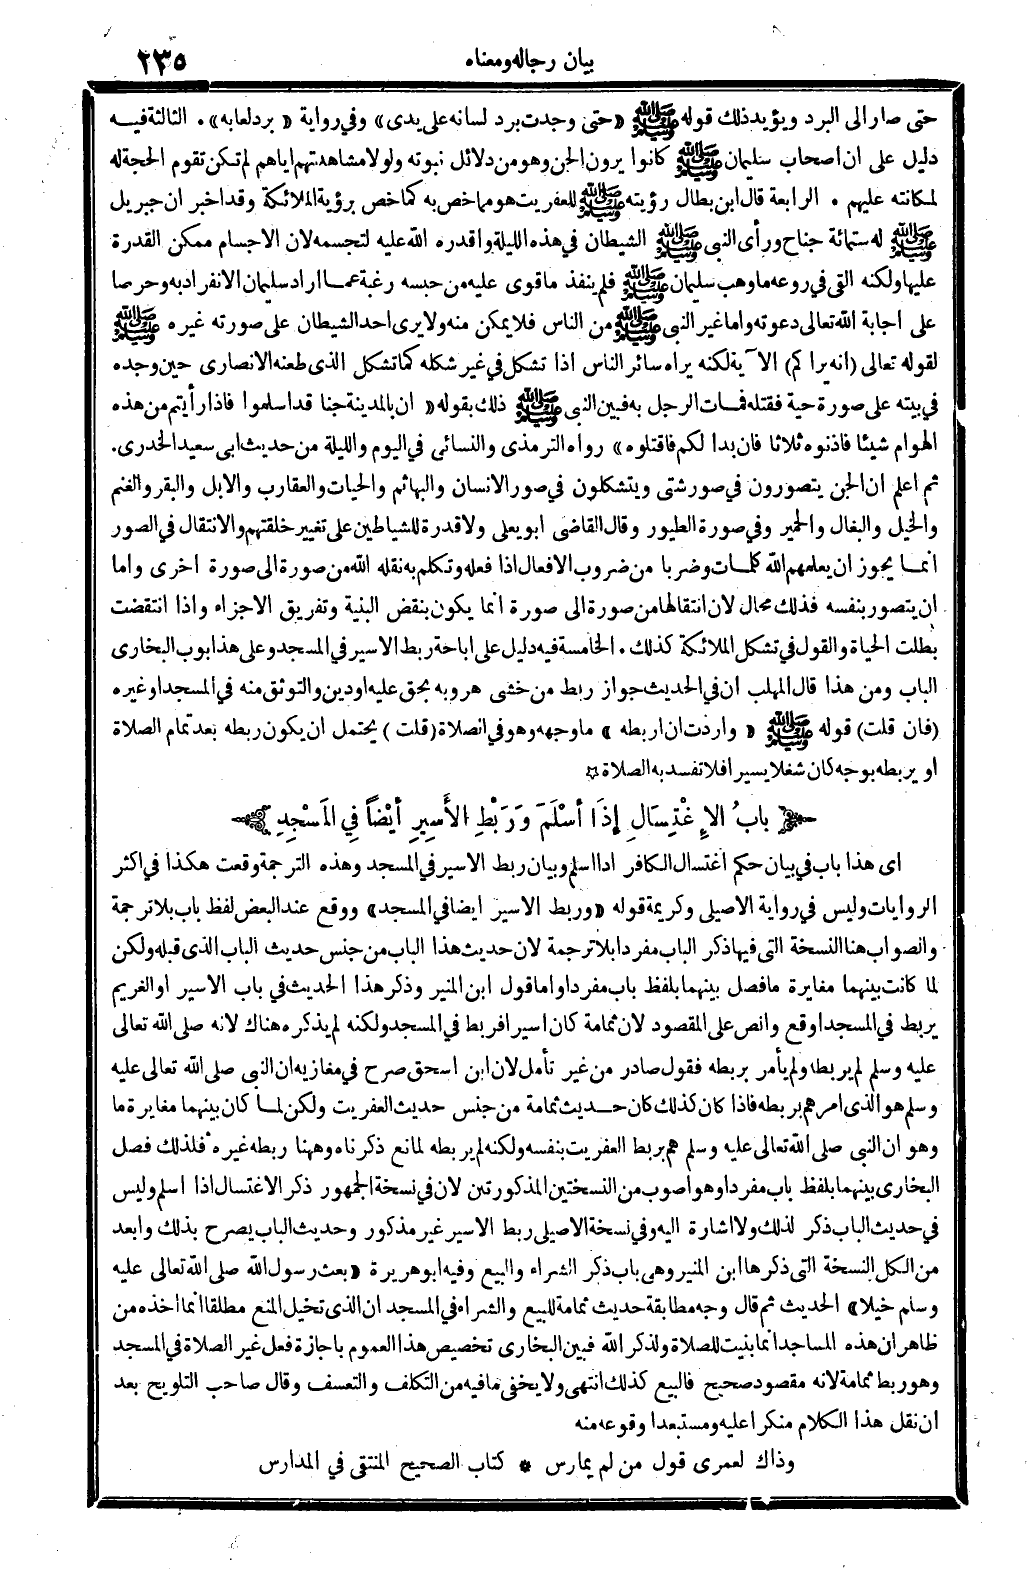 بيان رجاله ومعناه ٢٣٥
حتى صار الى البرد ويؤيد ذلك قوله ﷺ «حتى وجدت برد لسانه على يدى» وفي رواية «برد لعابه» . الثالثة فيه
دليل على ان اصحاب سليمان ﷺ كانوا يرون الجن وهو من دلائل نبوته ولولا مشاهدتهم اياهم لم تكن تقوم الحجة له
لمكانته عليهم . الرابعة قال ابن بطال رؤيته ﷺ للعفريت هو مما خص به كما خص برؤية الملائكة وقد اخبر ان جبريل
ﷺ له ستمائة جناح ورأى النبي ﷺ الشيطان في هذه الليلة واقدره الله عليه لتجسمه لان الاجسام ممكن القدرة
عليها ولكنه القى في روعه ما وهب سليمان ﷺ فلم ينفذ ما قوى عليه من حبسه رغبة عما اراد سليمان الانفراد به وحرصا
على اجابة الله تعالى دعوته واما غير النبي ﷺ من الناس فلا يمكن منه ولا يرى احد الشيطان على صورته غيره ﷺ
لقوله تعالى (انه يراكم) الآية لكنه يراه سائر الناس اذا تشكل في غير شكله كما تشكل الذى طعنه الانصارى حين وجده
في بيته على صورة حية فقتله فمات الرجل به فبين النبي ﷺ ذلك بقوله «ان بالمدينة جنا قد اسلموا فاذا رأيتم من هذه
الهوام شيئا فاذنوه ثلاثا فان بدا لكم فاقتلوه» رواه الترمذى والنسائى في اليوم والليلة من حديث ابى سعيد الخدرى.
ثم اعلم ان الجن يتصورون في صور شتى ويتشكلون في صور الانسان والبهائم والحيات والعقارب والابل والبقر والغنم
والخيل والبغال والحمير وفي صورة الطيور وقال القاضى ابو يعلى ولا قدرة للشياطين على تغيير خلقتهم والانتقال في الصور
انما يجوز ان يعلمهم الله كلمات وضربا من ضروب الافعال اذا فعله وتكلم به نقله الله من صورة الى صورة اخرى واما
ان يتصور بنفسه فذلك محال لان انتقالها من صورة الى صورة انما يكون بنقض البنية وتفريق الاجزاء واذا انتقضت
بطلت الحياة والقول في تشكل الملائكة كذلك . الخامسة فيه دليل على اباحة ربط الاسير في المسجد وعلى هذا بوب البخارى
الباب ومن هذا قال المهلب ان في الحديث جواز ربط من خشى هروبه بحق عليه او دين والتوثق منه في المسجد او غيره
(فان قلت) قوله ﷺ «واردت ان اربطه» ما وجهه وهو في الصلاة (قلت) يحتمل ان يكون ربطه بعد تمام الصلاة
او يربطه بوجه كان شغلا يسيرا فلا تفسد به الصلاة ☆
بابُ الإِغْتِسَالِ إِذَا أَسْلَمَ وَرَبْطِ الأَسِيرِ أَيْضًا فِي المَسْجِدِ
اى هذا باب في بيان حكم اغتسال الكافر اذا اسلم وبيان ربط الاسير في المسجد وهذه الترجمة وقعت هكذا في اكثر
الروايات وليس في رواية الاصيلى وكريمة قوله «وربط الاسير ايضا في المسجد» ووقع عند البعض لفظ باب بلا ترجمة
والصواب هنا النسخة التى فيها ذكر الباب مفردا بلا ترجمة لان حديث هذا الباب من جنس حديث الباب الذى قبله ولكن
لما كانت بينهما مغايرة ما فصل بينهما بلفظ باب مفردا واما قول ابن المنير وذكر هذا الحديث في باب الاسير او الغريم
يربط في المسجد اوقع وانص على المقصود لان ثمامة كان اسيرا فربط في المسجد ولكنه لم يذكره هناك لانه صلى الله تعالى
عليه وسلم لم يربطه ولم يأمر بربطه فقول صادر من غير تأمل لان ابن اسحق صرح في مغازيه ان النبى صلى الله تعالى عليه
وسلم هو الذى امرهم بربطه فاذا كان كذلك كان حديث ثمامة من جنس حديث العفريت ولكن لما كان بينهما مغايرة ما
وهو ان النبى صلى الله تعالى عليه وسلم هم بربط العفريت بنفسه ولكنه لم يربطه لمانع ذكرناه وههنا ربطه غيره فلذلك فصل
البخارى بينهما بلفظ باب مفردا وهو اصوب من النسختين المذكورتين لان في نسخة الجمهور ذكر الاغتسال اذا اسلم وليس
في حديث الباب ذكر لذلك ولا اشارة اليه وفي نسخة الاصيلى ربط الاسير غير مذكور وحديث الباب يصرح بذلك وابعد
من الكل النسخة التى ذكرها ابن المنير وهى باب ذكر الشراء والبيع وفيه ابو هريرة «بعث رسول الله صلى الله تعالى عليه
وسلم خيلا» الحديث ثم قال وجه مطابقة حديث ثمامة للبيع والشراء في المسجد ان الذى تخيل المنع مطلقا انما اخذه من
ظاهر ان هذه المساجد انما بنيت للصلاة ولذكر الله فبين البخارى تخصيص هذا العموم باجازة فعل غير الصلاة في المسجد
وهو ربط ثمامة لانه مقصود صحيح فالبيع كذلك انتهى ولا يخفى ما فيه من التكلف والتعسف وقال صاحب التلويح بعد
ان نقل هذا الكلام منكرا عليه ومستبعدا وقوعه منه
وذاك لعمرى قول من لم يمارس * كتاب الصحيح المنتقى في المدارس